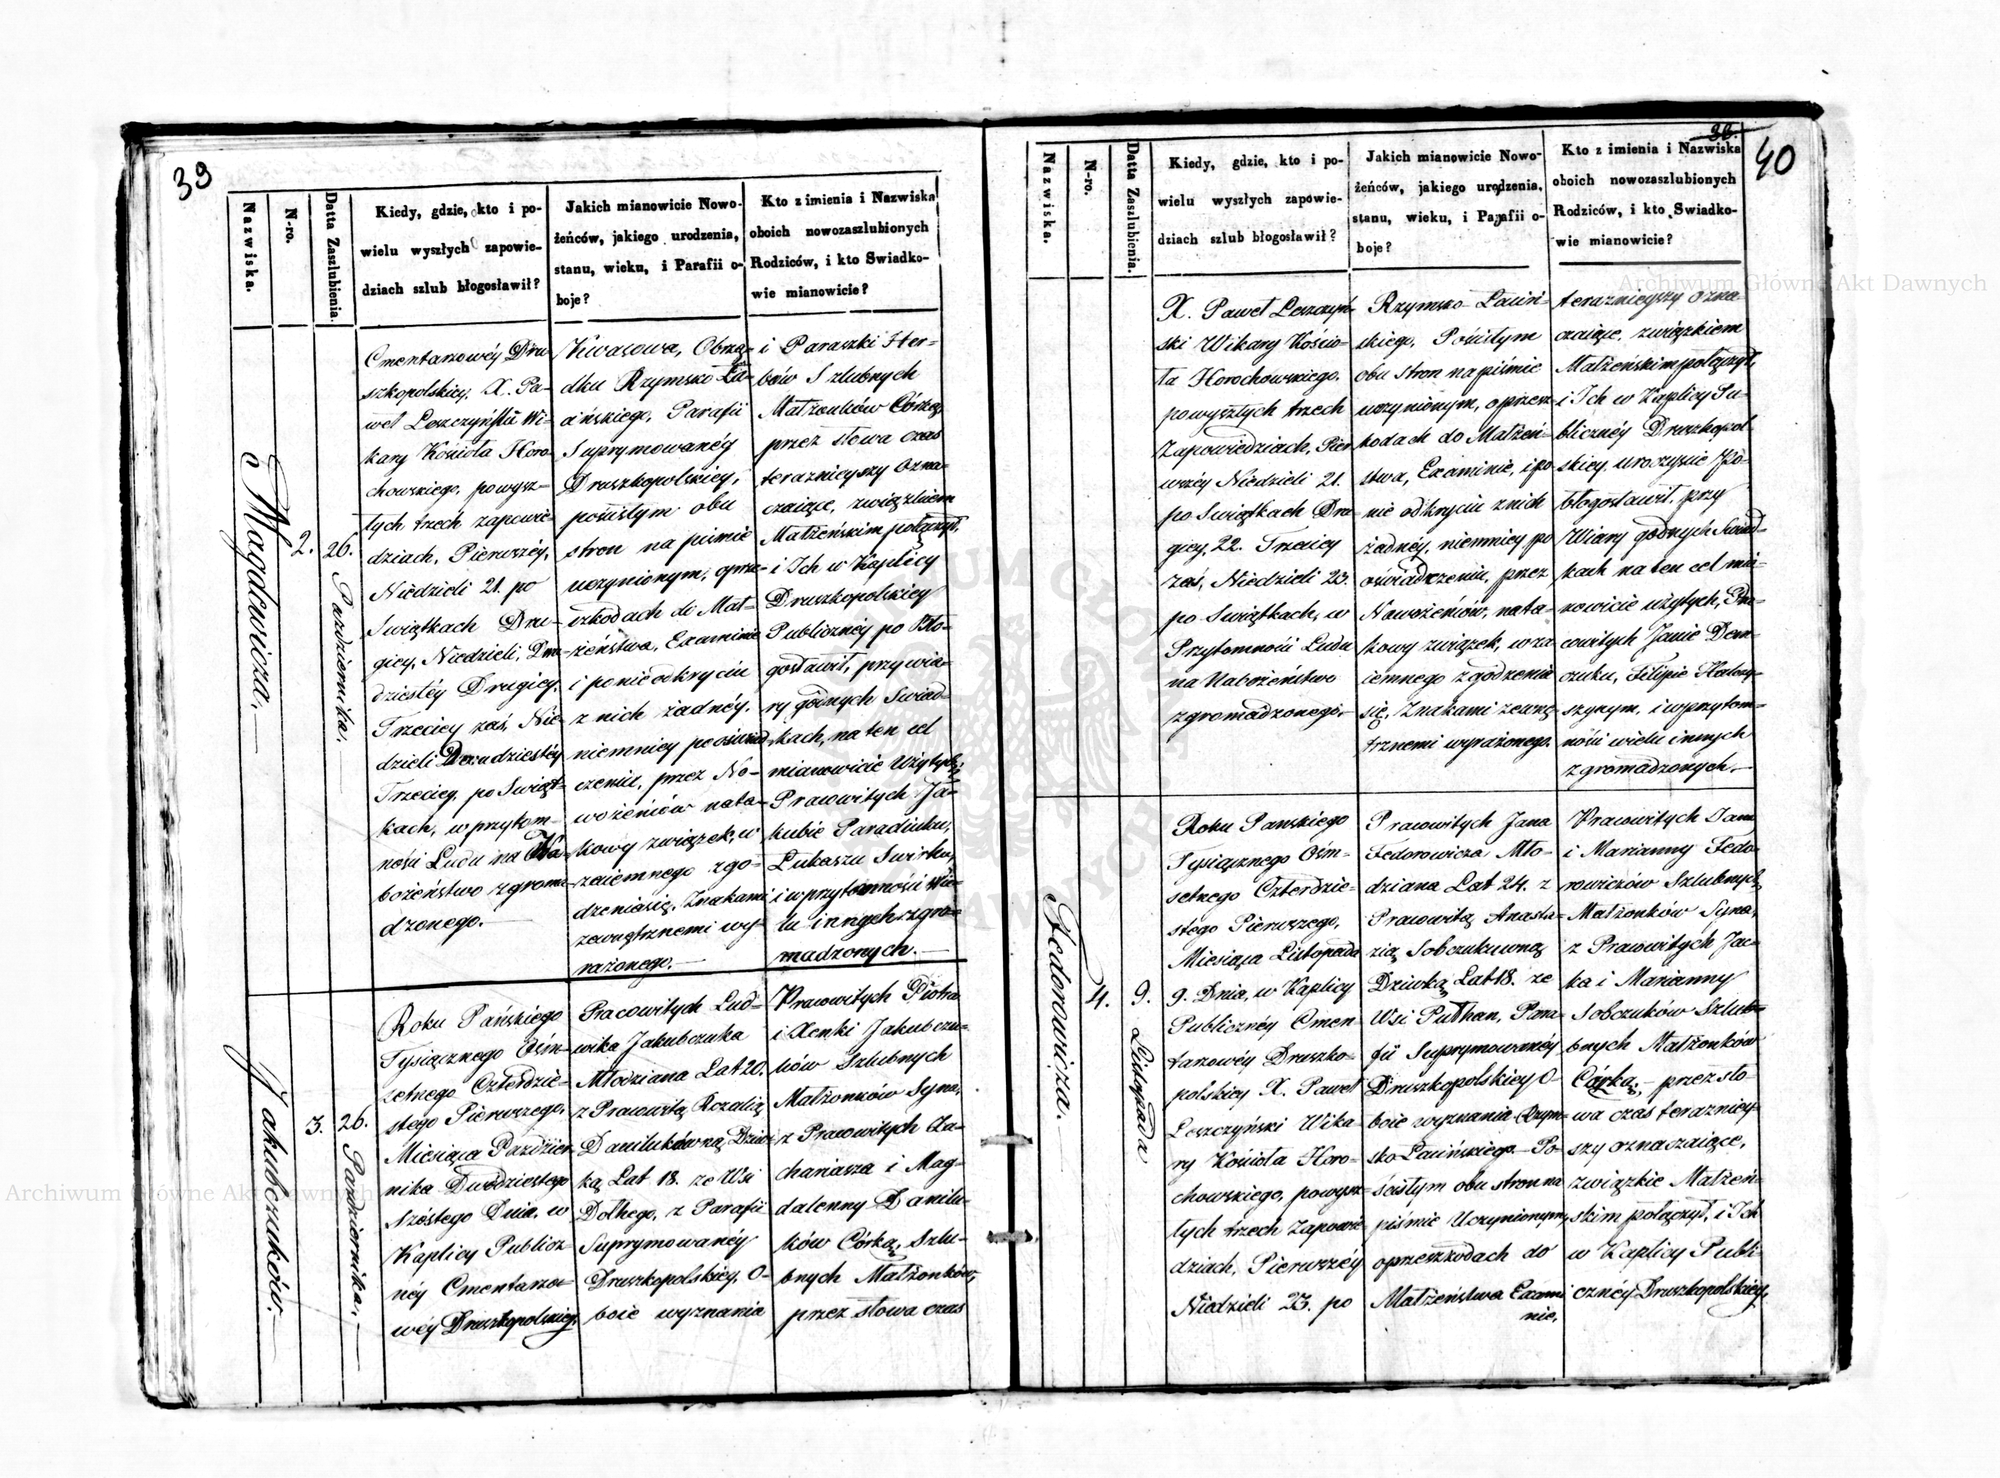 39
Nazwiska.
N-ro.
Datta Zaszlubienia.
Kiedy, gdzie, kto i po-
wielu wyszłych zapowie-
dziach szlub błogosławił?
Jakich mianowicie Nowo-
żeńców, jakiego urodzenia,
stanu, wieku, i Parafii o-
boje?
Kto z imienia i Nazwiska
oboich nowozaszlubionych
Rodziców, i kto Swiadko-
wie mianowicie?
Magdewicza.
2.
26.
Pazdziernika.
Cmentarzowéy Dru
szkopolskiey, X. Pa-
weł Leszczyński Wi-
kary Kościoła Horo-
chowskiego, powysz-
łych trzech zapowie-
dziach, Pierwszéy,
Niedzieli 21. po
Swiątkach Dru-
giey, Niedzieli, Dwa-
dziestéy Drugiey,
Trzeciey zaś, Nie-
dzieli Dwudziestéy
Trzeciey, po Swiąt-
kach, w przytom-
ności Ludu na Na-
bożeństwo zgroma-
dzonego.
Kwasowa, Obrzą-
dku Rzymsko La-
cińskiego, Parafii
Suprymowanéy
Druszkopolskiey,
pościsłym obu
stron na piśmie
uczynionym, oprze-
szkodach do Mał-
żeństwa, Examinie
i ponieodkryciu
z nich żadnéy,
niemniey po oświad-
czeniu, przez No-
wożeńców nata-
kowy związek, w
zaiemnego zgo-
dzeniasię, Znakami
zewnętrznemi wy-
rażonego.
i Paraszki Her-
bów Szlubnych
Małżonków Córką,
przez słowa czas
teraznieyszy ozna-
czaiące, związkiem
Małżeńskim połączył,
i Ich w Kaplicy
Druszkopolskiey
Publicznéy po Bło-
gosławił, przy wia-
ry godnych Swiad-
kach, na ten cel
mianowicie Użytych,
Pracowitych Ja-
kubie Paradiuku,
Łukaszu Swirku,
i w przytomności Wie-
lu innych zgro-
madzonych.
Jakubczuków.
3.
26.
Pazdziernika.
Roku Pańskiego
Tysiącznego Ośm-
setnego Czterdzie-
stego Pierwszego,
Miesiąca Pazdzier-
nika Dwódziestego
szóstego Dnia, w
Kaplicy Publicz-
néy Cmentarzo-
wéy Druszkopolskiey,
Pracowitych Lud-
wika Jakubczuka
Młodziana Lat 20.
z Pracowitą Rozalią
Danilukówną, Dziew-
ką Lat 18. ze Wsi
Dołhego, z Parafii
Suprymowanéy
Druszkopolskiey, O-
boie wyznania
Pracowitych Piotra
i Xenki Jakubczu-
ków Szlubnych
Małżonków Syna,
z Pracowitych Za-
chariasza i Mag-
dalenny Danilu-
ków Córką, Szlu-
bnych Małżonków,
przez słowa czas
40
Nazwiska.
N-ro.
Datta Zaszlubienia.
Kiedy, gdzie, kto i po-
wielu wyszłych zapowie-
dziach szlub błogosławił?
Jakich mianowicie Nowo-
żeńców, jakiego urodzenia,
stanu, wieku, i Parafii o-
boje?
Kto z imienia i Nazwiska
oboich nowozaszlubionych
Rodziców, i kto Swiadko-
wie mianowicie?
X. Paweł Leszczyń-
ski Wikary Kościo-
ła Horochowskiego,
powyszłych trzech
Zapowiedziach, Pier
wszéy Niedzieli 21.
po Swiątkach Dru
giey, 22. Trzeciey
zaś, Niedzieli 23.
po Swiątkach, w
Przytomności Ludu
na Nabożeństwo
zgromadzonego.
Rzymsko Laciń-
skiego, Pościsłym
obu stron na piśmie
uczynionym, oprzesz-
kodach do Małżeń-
stwa, Examinie, i po
nie odkryciu z nich
żadnéy, niemniey po
oświadczeniu, przez
Nowożeńców, nata-
kowy związek, wza
iemnego zgodzenia
się, Znakami zewnę
trznemi wyrażonego.
teraznieyszy ozna
czaiące, związkiem
Małżeńskim połączył,
i Ich w Kaplicy Pu-
blicznéy Druszkopol
skiey, uroczyście Po-
błogosławił, przy
Wiary godnych Swiad-
kach na ten cel mia-
nowicie użytych, Pra-
cowitych Janie Dem-
czuku, Filipie
i w przytom-
ności wielu innych
zgromadzonych.
Fedorowicza.
4.
9.
Listopada
Roku Pańskiego
Tysiącznego Ośm-
setnego Czterdzie-
stego Pierwszego,
Miesiąca Listopada
9. Dnia, w Kaplicy
Publicznéy Cmen
tarzowéy Druszko-
polskiey X. Paweł
Leszczyński Wika-
ry Kościoła Horo-
chowskiego, powysz-
łych trzech Zapowie
dziach, Pierwszéy
Niedzieli 23. po
Pracowitych Jana
Fedorowicza Mło-
dziana Lat 24. z
Pracowitą Anasta-
zią Sobczukuwną
Dziwką Lat 18. ze
Wsi Pułhan, Para-
fii Suprymowanéy
Druszkopolskiey O-
boie wyznania Rzym-
sko Lacińskiego Po-
ścisłym obu stron na
piśmie Uczynionym,
oprzeszkodach do
Małżeństwa Exami
nie,
Pracowitych Jana
i Marianny Fedo-
rowiczów Szlubnych
Małżonków Syna,
z Pracowitych Jac-
ka i Marianny
Sobczuków Szlu-
bnych Małżonków
Córką, przez sło-
wa czas terazniey-
szy oznaczaiące,
związkie Małżeń-
skim połączył, i Ich
w Kaplicy Publi-
cznéy Druszkopolskiey,
Archiwum Główne Akt Dawnych
Archiwum Główne Akt Dawnych